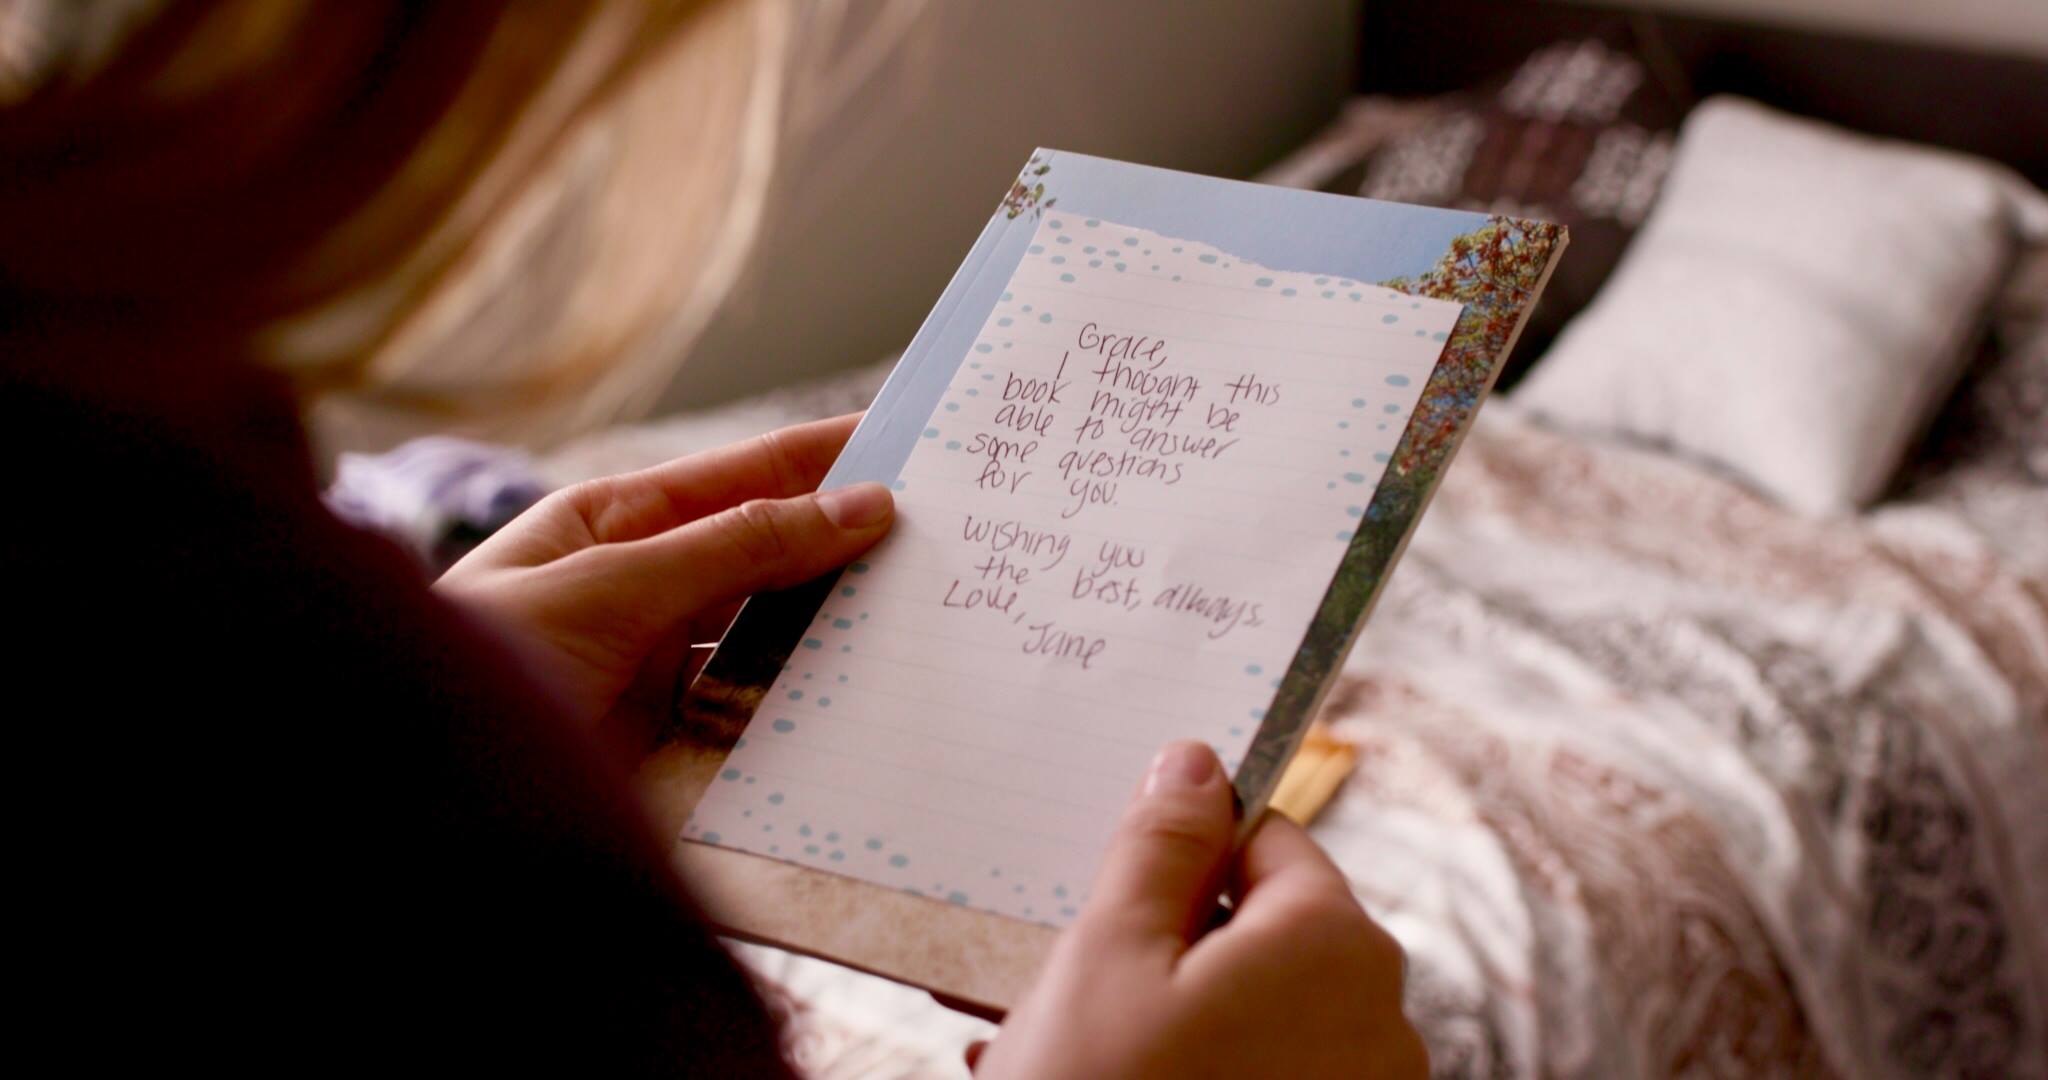 Grace,
I thought this
book might be
able to answer
some questions
for you.
Wishing you
the best, always.
Love,
Jane